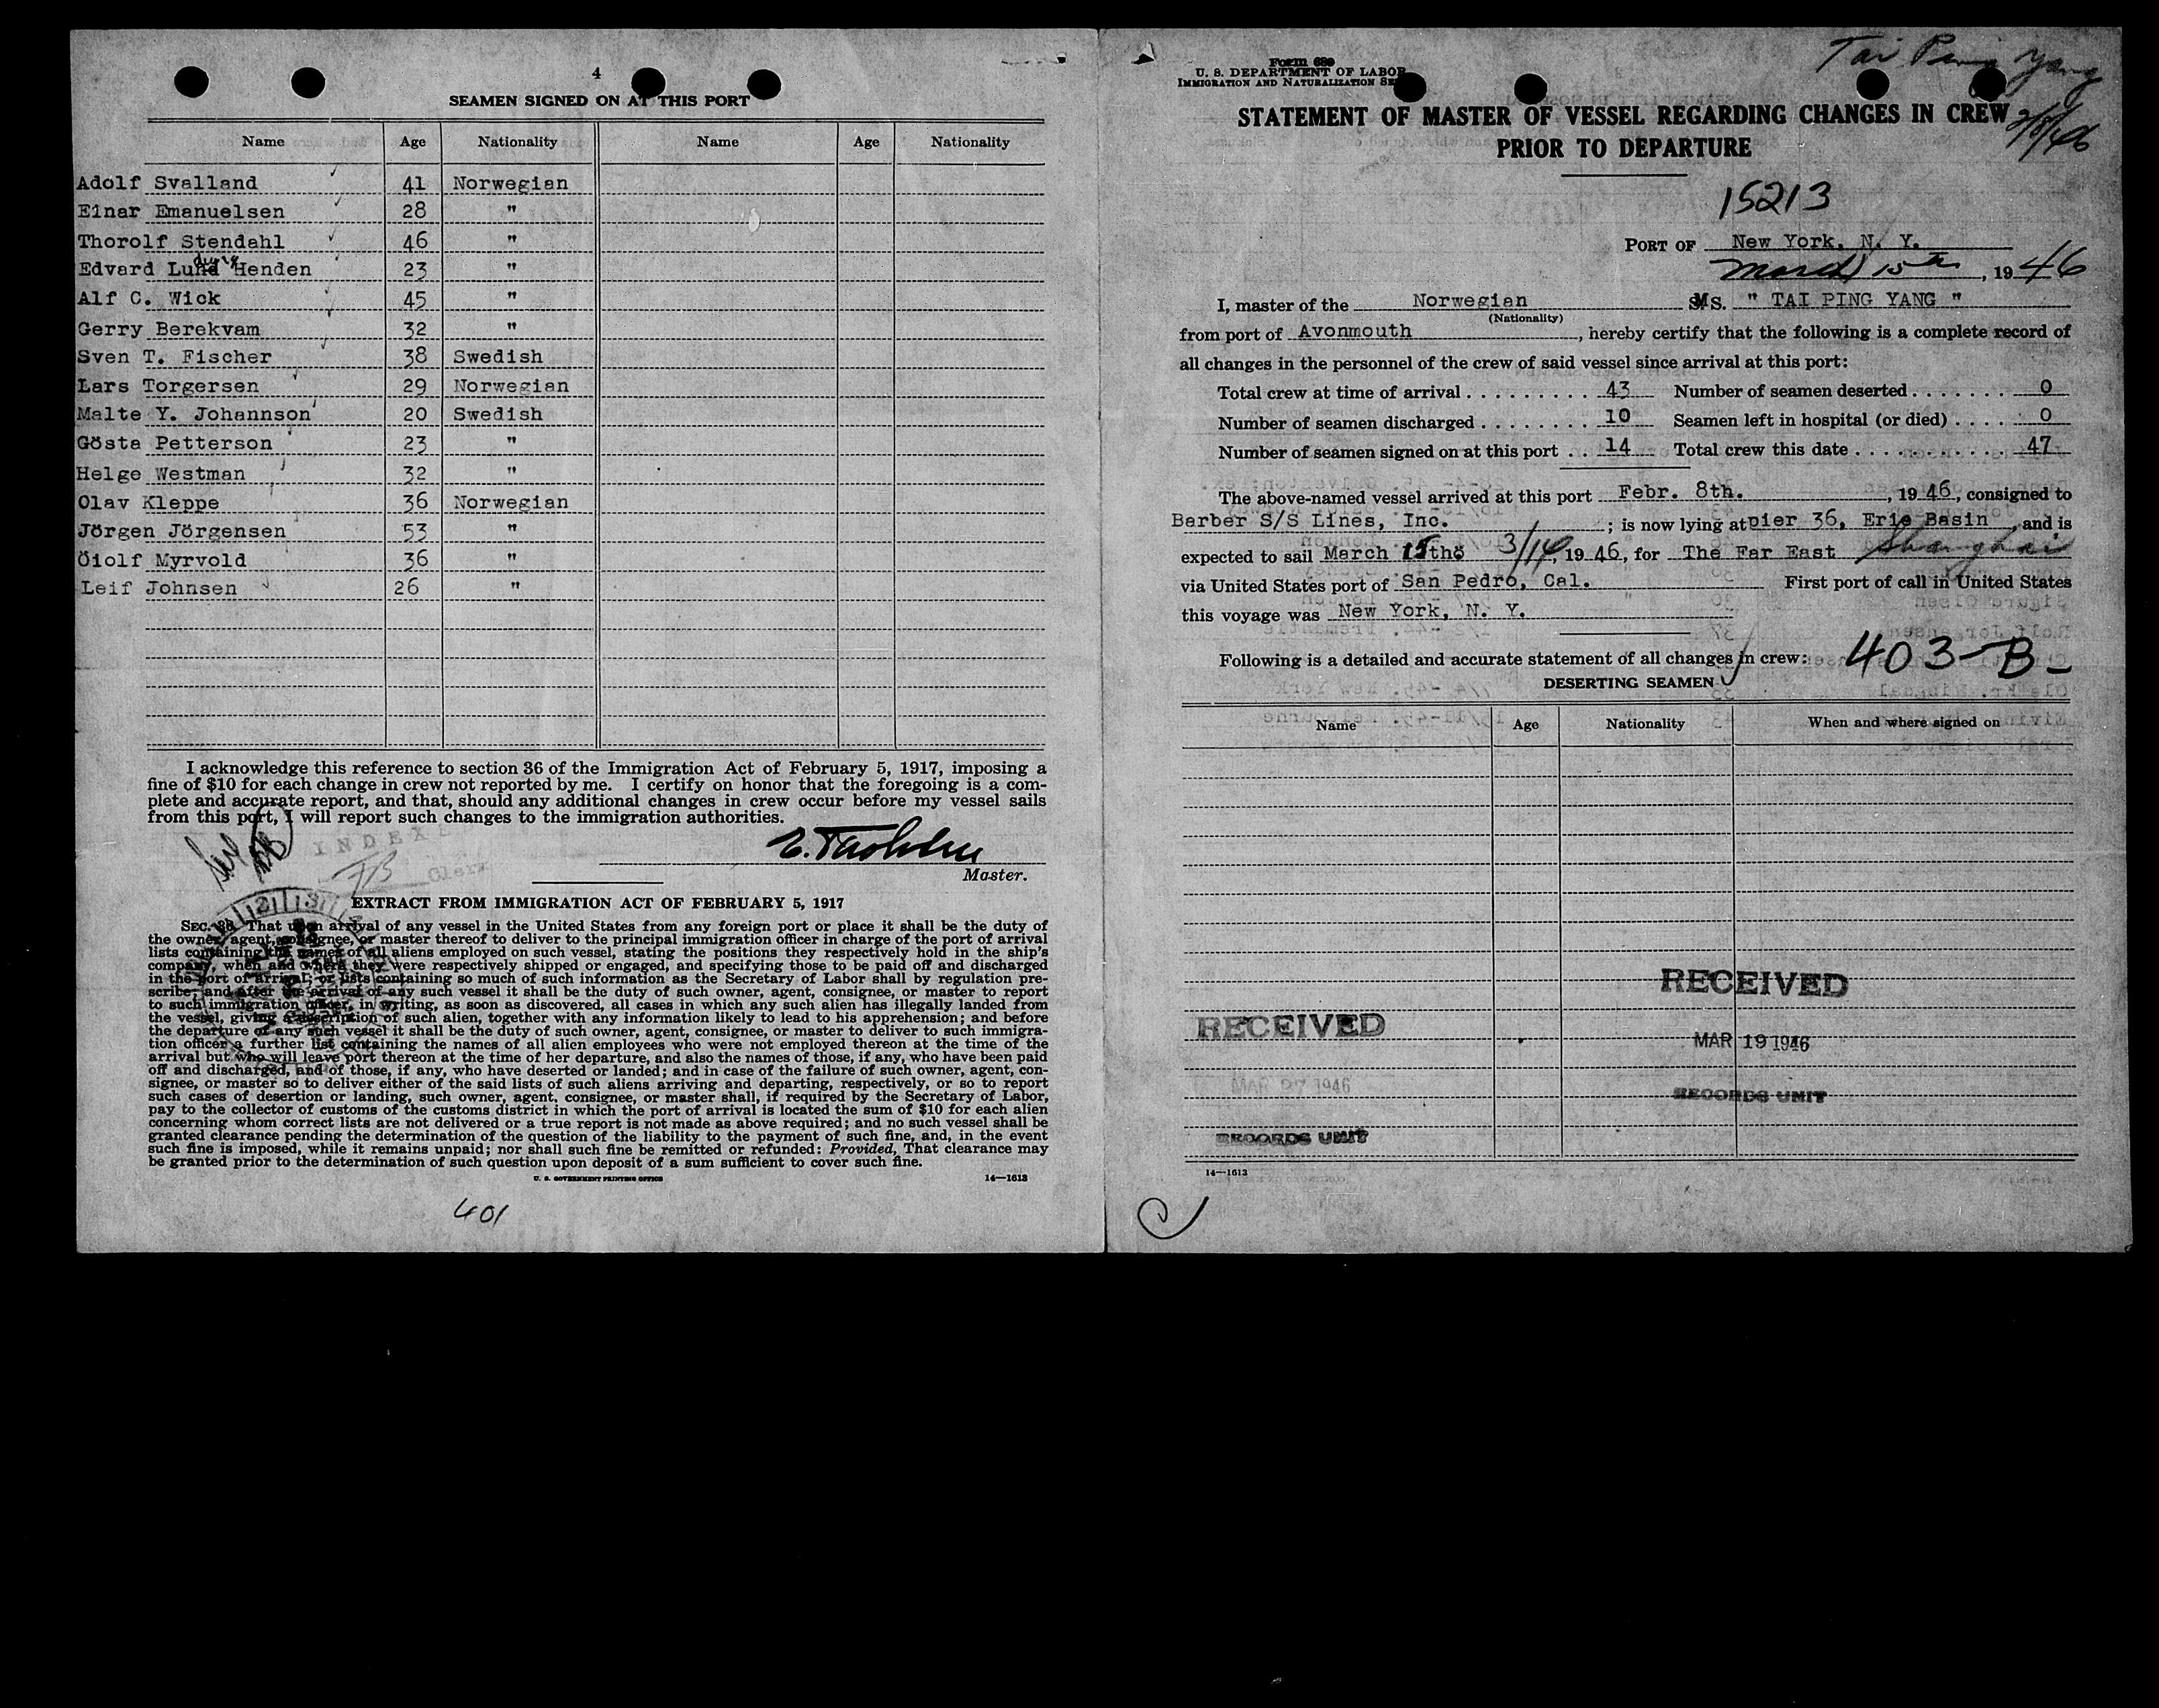 4
SEAMEN SIGNED ON AT THIS PORT
Name Age Nationality Name Age Nationality
Adolf Svalland 41 Norwegian
Einar Emanuelsen 28 "
Thorolf Stendahl 46 "
Edvard Lund Henden 23 "
Alf C. Wick 45 "
Gerry Berekvam 32 "
Sven T. Fischer 38 Swedish
Lars Torgersen 29 Norwegian
Malte Y. Johannson 20 Swedish
Gösta Petterson 23 "
Helge Westman 32 "
Olav Kleppe 36 Norwegian
Jörgen Jörgensen 53 "
Öiolf Myrvold 36 "
Leif Johnsen 26 "
I acknowledge this reference to section 36 of the Immigration Act of February 5, 1917, imposing a
fine of $10 for each change in crew not reported by me. I certify on honor that the foregoing is a com-
plete and accurate report, and that, should any additional changes in crew occur before my vessel sails
from this port, I will report such changes to the immigration authorities.
INDEX
FB Clerk
Master.
EXTRACT FROM IMMIGRATION ACT OF FEBRUARY 5, 1917
SEC. 36. That upon arrival of any vessel in the United States from any foreign port or place it shall be the duty of
the owner, agent, consignee, or master thereof to deliver to the principal immigration officer in charge of the port of arrival
lists containing the names of all aliens employed on such vessel, stating the positions they respectively hold in the ship's
company, when and where they were respectively shipped or engaged, and specifying those to be paid off and discharged
in the port of arrival; or lists containing so much of such information as the Secretary of Labor shall by regulation pre-
scribe; and after the arrival of any such vessel it shall be the duty of such owner, agent, consignee, or master to report
to such immigration officer, in writing, as soon as discovered, all cases in which any such alien has illegally landed from
the vessel, giving a description of such alien, together with any information likely to lead to his apprehension; and before
the departure of any such vessel it shall be the duty of such owner, agent, consignee, or master to deliver to such immigra-
tion officer a further list containing the names of all alien employees who were not employed thereon at the time of the
arrival but who will leave port thereon at the time of her departure, and also the names of those, if any, who have been paid
off and discharged, and of those, if any, who have deserted or landed; and in case of the failure of such owner, agent, con-
signee, or master so to deliver either of the said lists of such aliens arriving and departing, respectively, or so to report
such cases of desertion or landing, such owner, agent, consignee, or master shall, if required by the Secretary of Labor,
pay to the collector of customs of the customs district in which the port of arrival is located the sum of $10 for each alien
concerning whom correct lists are not delivered or a true report is not made as above required; and no such vessel shall be
granted clearance pending the determination of the question of the liability to the payment of such fine, and, in the event
such fine is imposed, while it remains unpaid; nor shall such fine be remitted or refunded: Provided, That clearance may
be granted prior to the determination of such question upon deposit of a sum sufficient to cover such fine.
U. S. GOVERNMENT PRINTING OFFICE 14—1613
401
Form 689
U. S. DEPARTMENT OF LABOR
IMMIGRATION AND NATURALIZATION SE
Tai Ping Yang
2/8/46
STATEMENT OF MASTER OF VESSEL REGARDING CHANGES IN CREW
PRIOR TO DEPARTURE
15213
PORT OF New York, N. Y.
March 15th, 1946
I, master of the Norwegian MS. " TAI PING YANG "
(Nationality)
from port of Avonmouth, hereby certify that the following is a complete record of
all changes in the personnel of the crew of said vessel since arrival at this port:
Total crew at time of arrival . . . . . . . . . . 43 Number of seamen deserted . . . . . . . 0
Number of seamen discharged . . . . . . . . 10 Seamen left in hospital (or died) . . . . 0
Number of seamen signed on at this port . . 14 Total crew this date . . . . . . . . . . . 47
The above-named vessel arrived at this port Febr. 8th., 1946, consigned to
Barber S/S Lines, Inc. ; is now lying at pier 36, Erie Basin, and is
expected to sail March 15th 3/16, 1946, for The Far East Shanghai
via United States port of San Pedro, Cal. First port of call in United States
this voyage was New York, N. Y.
Following is a detailed and accurate statement of all changes in crew: 403-B-
DESERTING SEAMEN
Name Age Nationality When and where signed on
RECEIVED
MAR 19 1946
RECORDS UNIT
RECEIVED
MAR 27 1946
RECORDS UNIT
14—1613